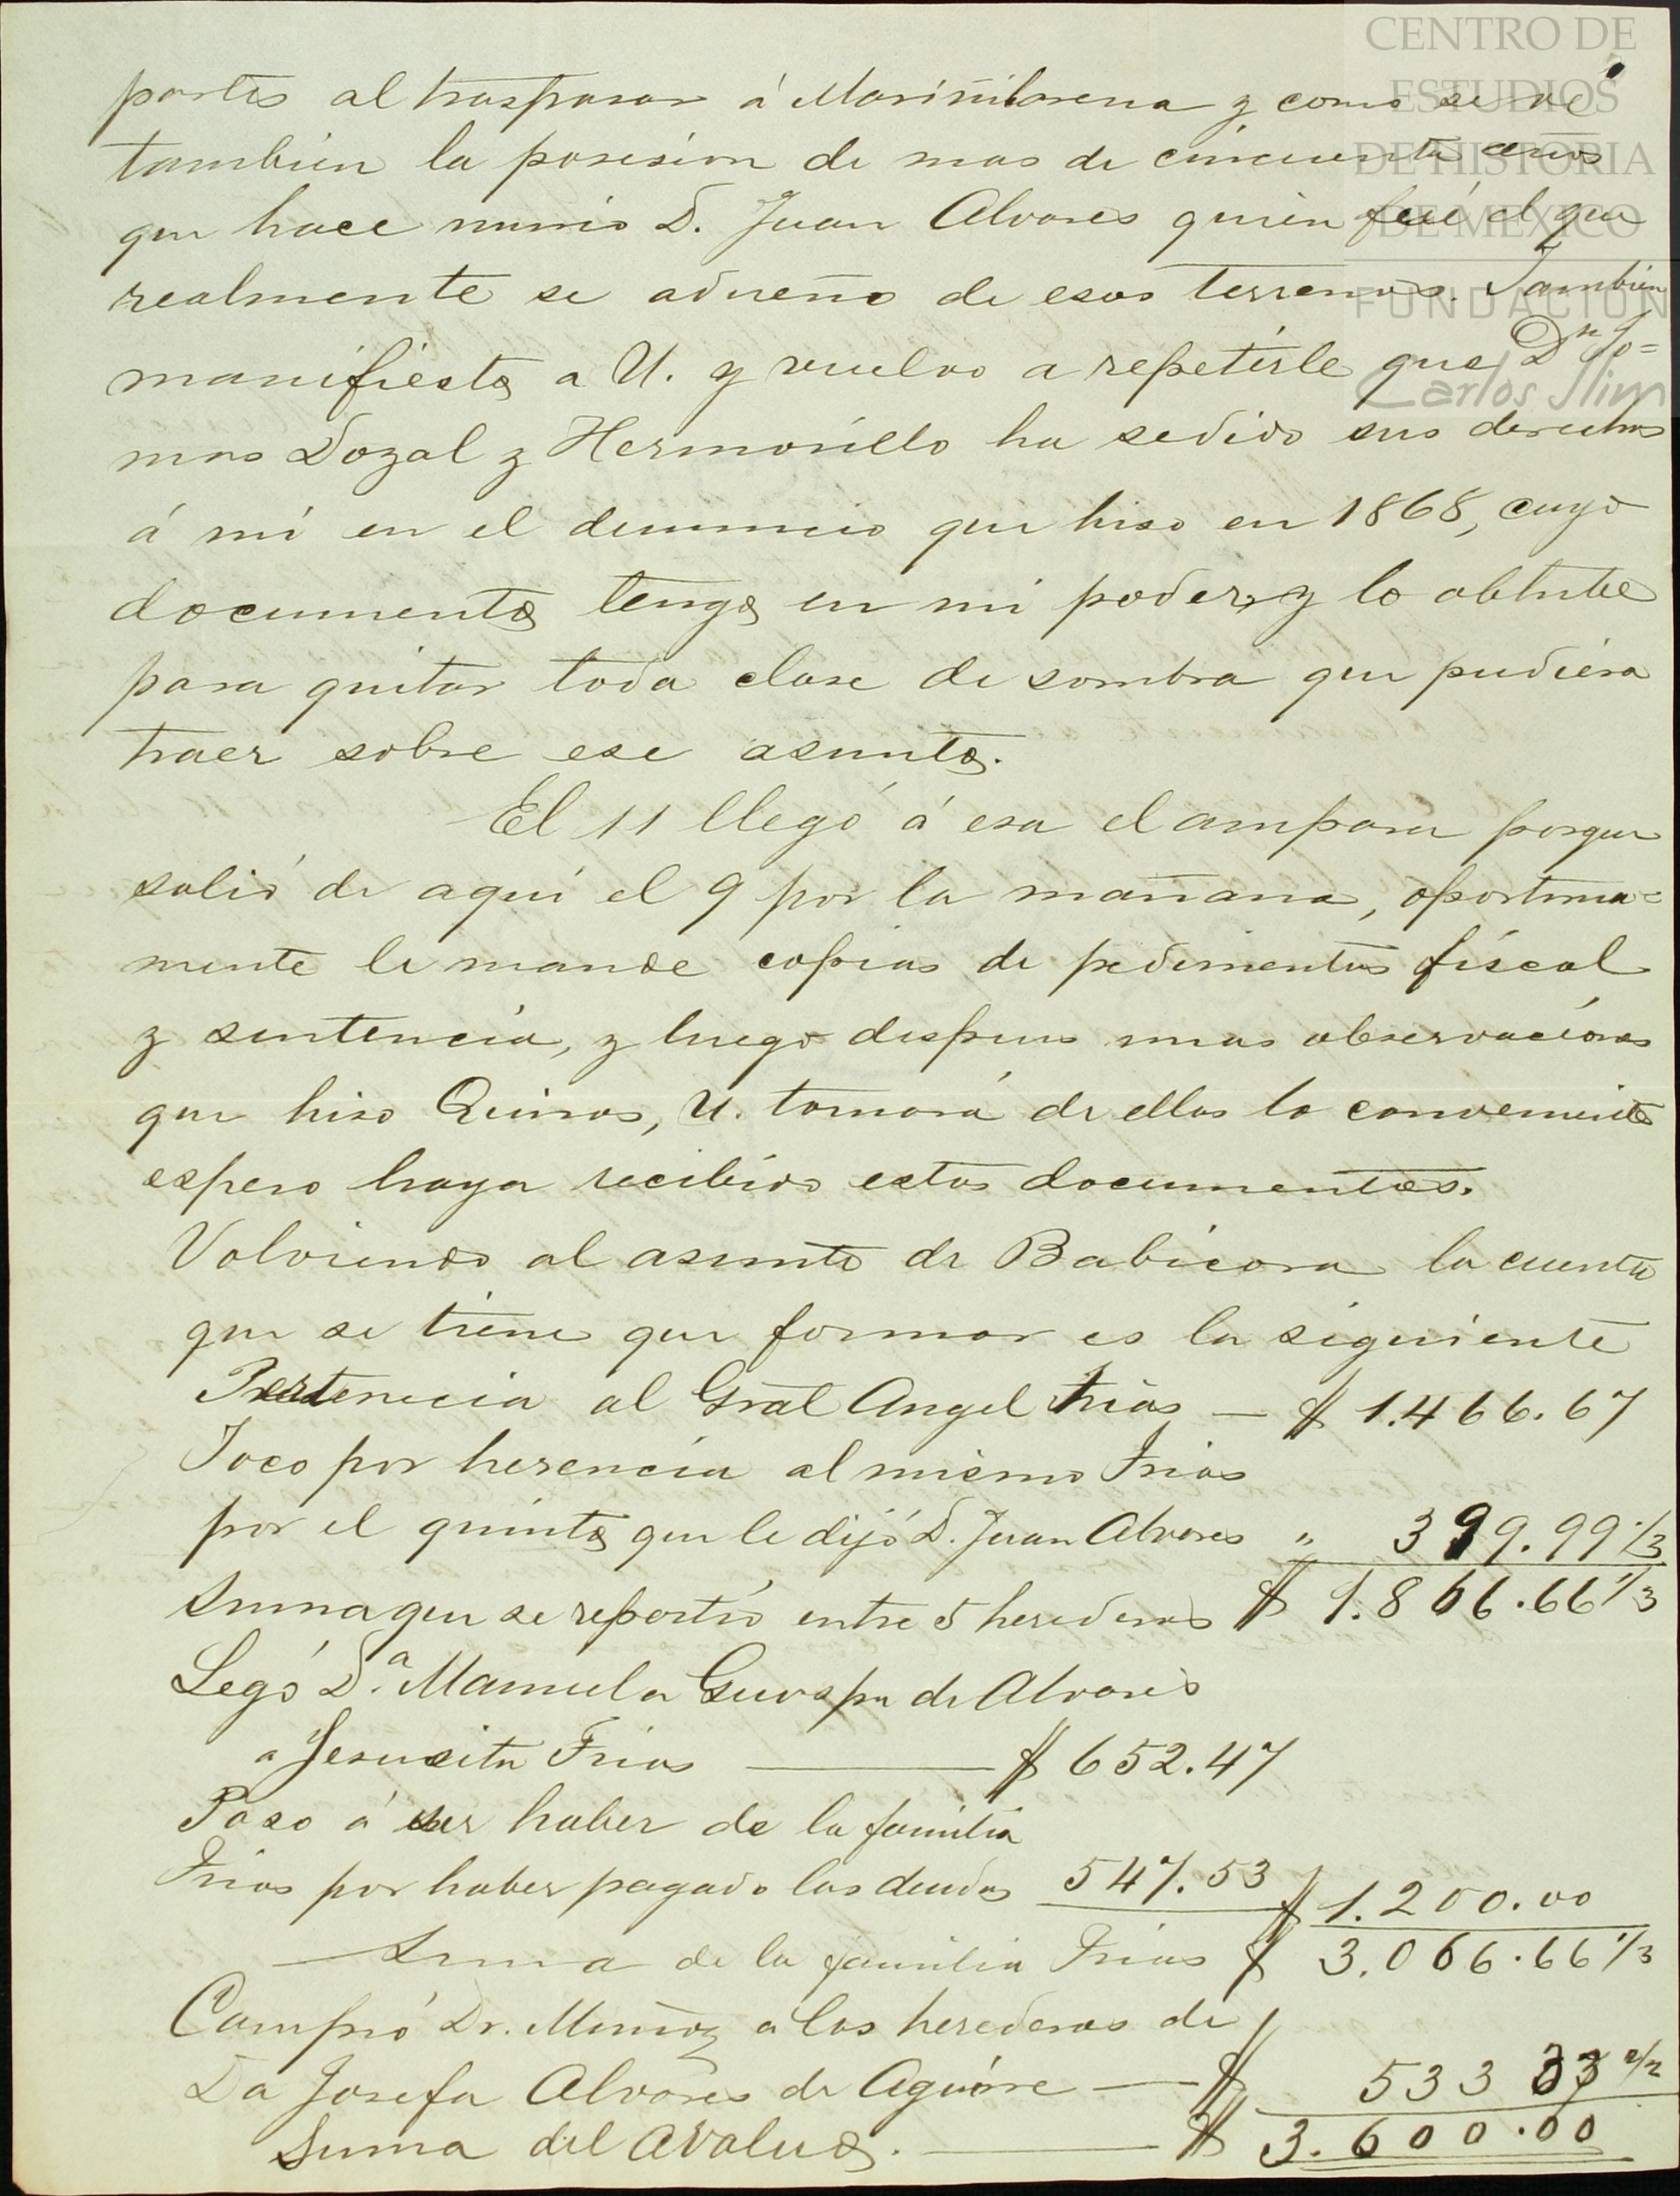 partes al traspasar á Mariñilarena y como se ve
tambien la posesion de mas de cincuenta años
que hace murio D. Juan Alvares quien fué el que
realmente se adueño de esos terrenos. Tambien
manifiesto a U. y vuelvo a repetirle que Dn To=
mas Dozal y Hermosillo ha sedido sus derechos
á mi en el denuncio que hiso en 1868, cuyo
documento tengo en mi poder, y lo obtube
para quitar toda clase de sombra que pudiera
traer sobre ese asunto.
El 11 llegó á esa el amparo porque
salió de aqui el 9 por la mañana, oportuna=
mente le mande copias de pedimentos fiscal
y sentencia, y luego despues unas observaciones
que hiso Quiros, U. tomará de ellas lo conveniente
espero haya recibido estos documentos.
Volviendo al asunto de Babicora la cuenta
que se tiene que formar es la siguiente
Pertenecia al Gral Angel Frias — $ 1.466.67
Toco por herencia al mismo Frias
por el quinto que le dijó D. Juan Alvares " 399.99 1/3
Suma que se repartió entre 5 herederos $ 1.866.66 1/3
Legó Da. Manuela Guraspe de Alvares
a Jesusita Frias — $ 652.47
Paso á ser haber de la familia
Frias por haber pagado las deudas 547.53 $ 1.200.00
— Suma de la familia Frias $ 3.066.66 1/3
Compró Dr. Muñoz a los herederos de
Da Josefa Alvares de Aguirre — $ 533 33
Suma del Avaluo. — $ 3.600.00
CENTRO DE
ESTUDIOS
DE HISTORIA
DE MEXICO
FUNDACIÓN
Carlos Slim